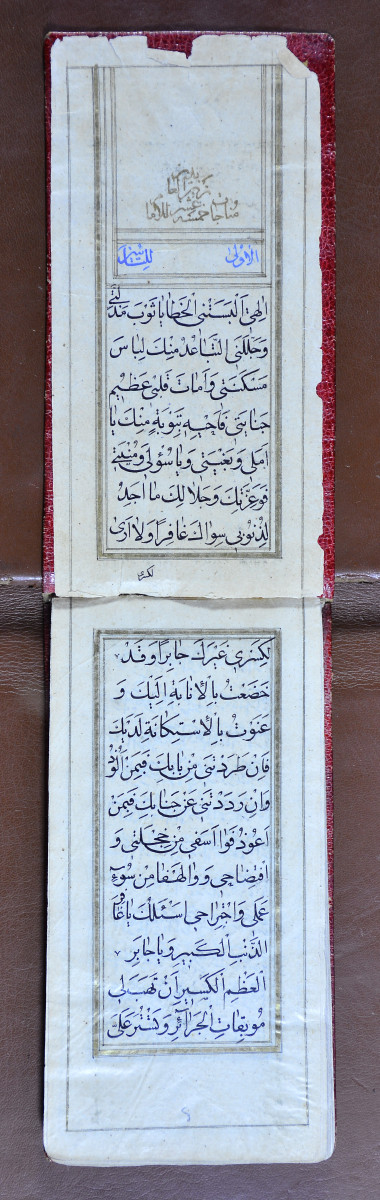 مناجات خمسة عشر للامام
زين
الأولى للتائبين
الهي البستني الخطايا ثوب مذلتي
وجللني التباعد منك لباس
مسكنتي وامات قلبي عظيم
جنايتي فاحيه بتوبة منك يا
املي وبغيتي ويا سؤلي ومنيتي
فوعزتك وجلالك ما اجد
لذنوبي سواك غافرا ولا ارى
لكسري
لكسري غيرك جابرا وقد
خضعت بالانابة اليك و
عنوت بالاستكانة لديك
فان طردتني من بابك فبمن الوذ
وان رددتني عن جنابك فبمن
اعوذ فوا اسفى من خجلتي و
افتضاحي ووالهفا من سوء
عملي واجتراحي اسئلك يا غافر
الذنب الكبير ويا جابر
العظم الكسير ان تهب لي
موبقات الجرائر وتستر علي